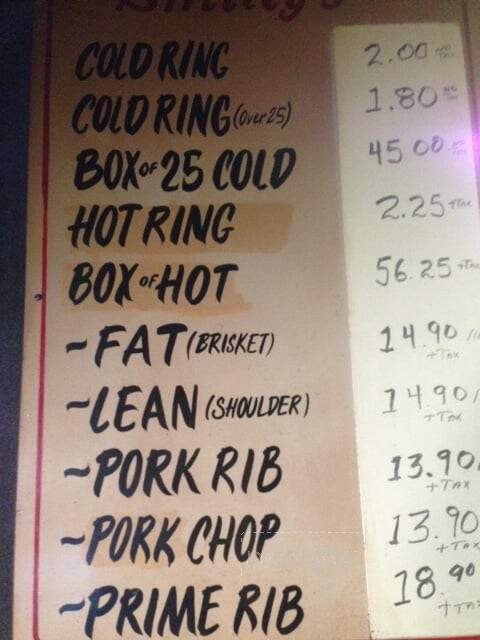 COLD RING 2.00 NO TAX
COLD RING (Over 25) 1.80 NO TAX
BOX OF 25 COLD 45 00 NO TAX
HOT RING 2.25 +TAX
BOX OF HOT 56.25 +TAX
~FAT (BRISKET) 14.90 /
+TAX
~LEAN (SHOULDER) 14.90/
+TAX
~PORK RIB 13.90
+TAX
~PORK CHOP 13.90
+TAX
~PRIME RIB 18.90
+TAX